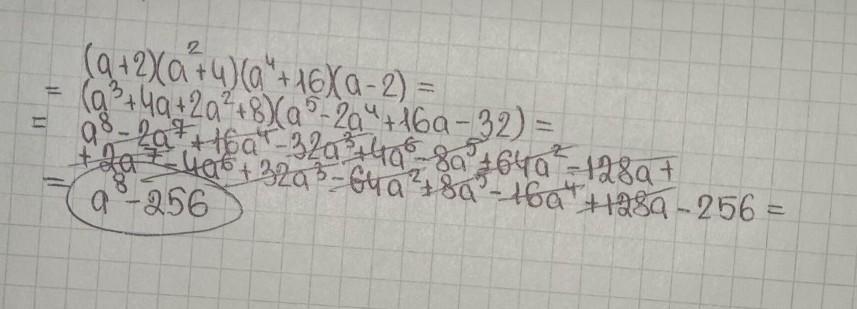 (a+2)(a²+4)(a⁴+16)(a-2)=
=(a³+4a+2a²+8)(a⁵-2a⁴+16a-32)=
=a⁸-2a⁷+16a⁴-32a³+4a⁶-8a⁵+64a²-128a+
+2a⁷-4a⁶+32a³-64a²+8a⁵-16a⁴+128a-256=
=a⁸-256